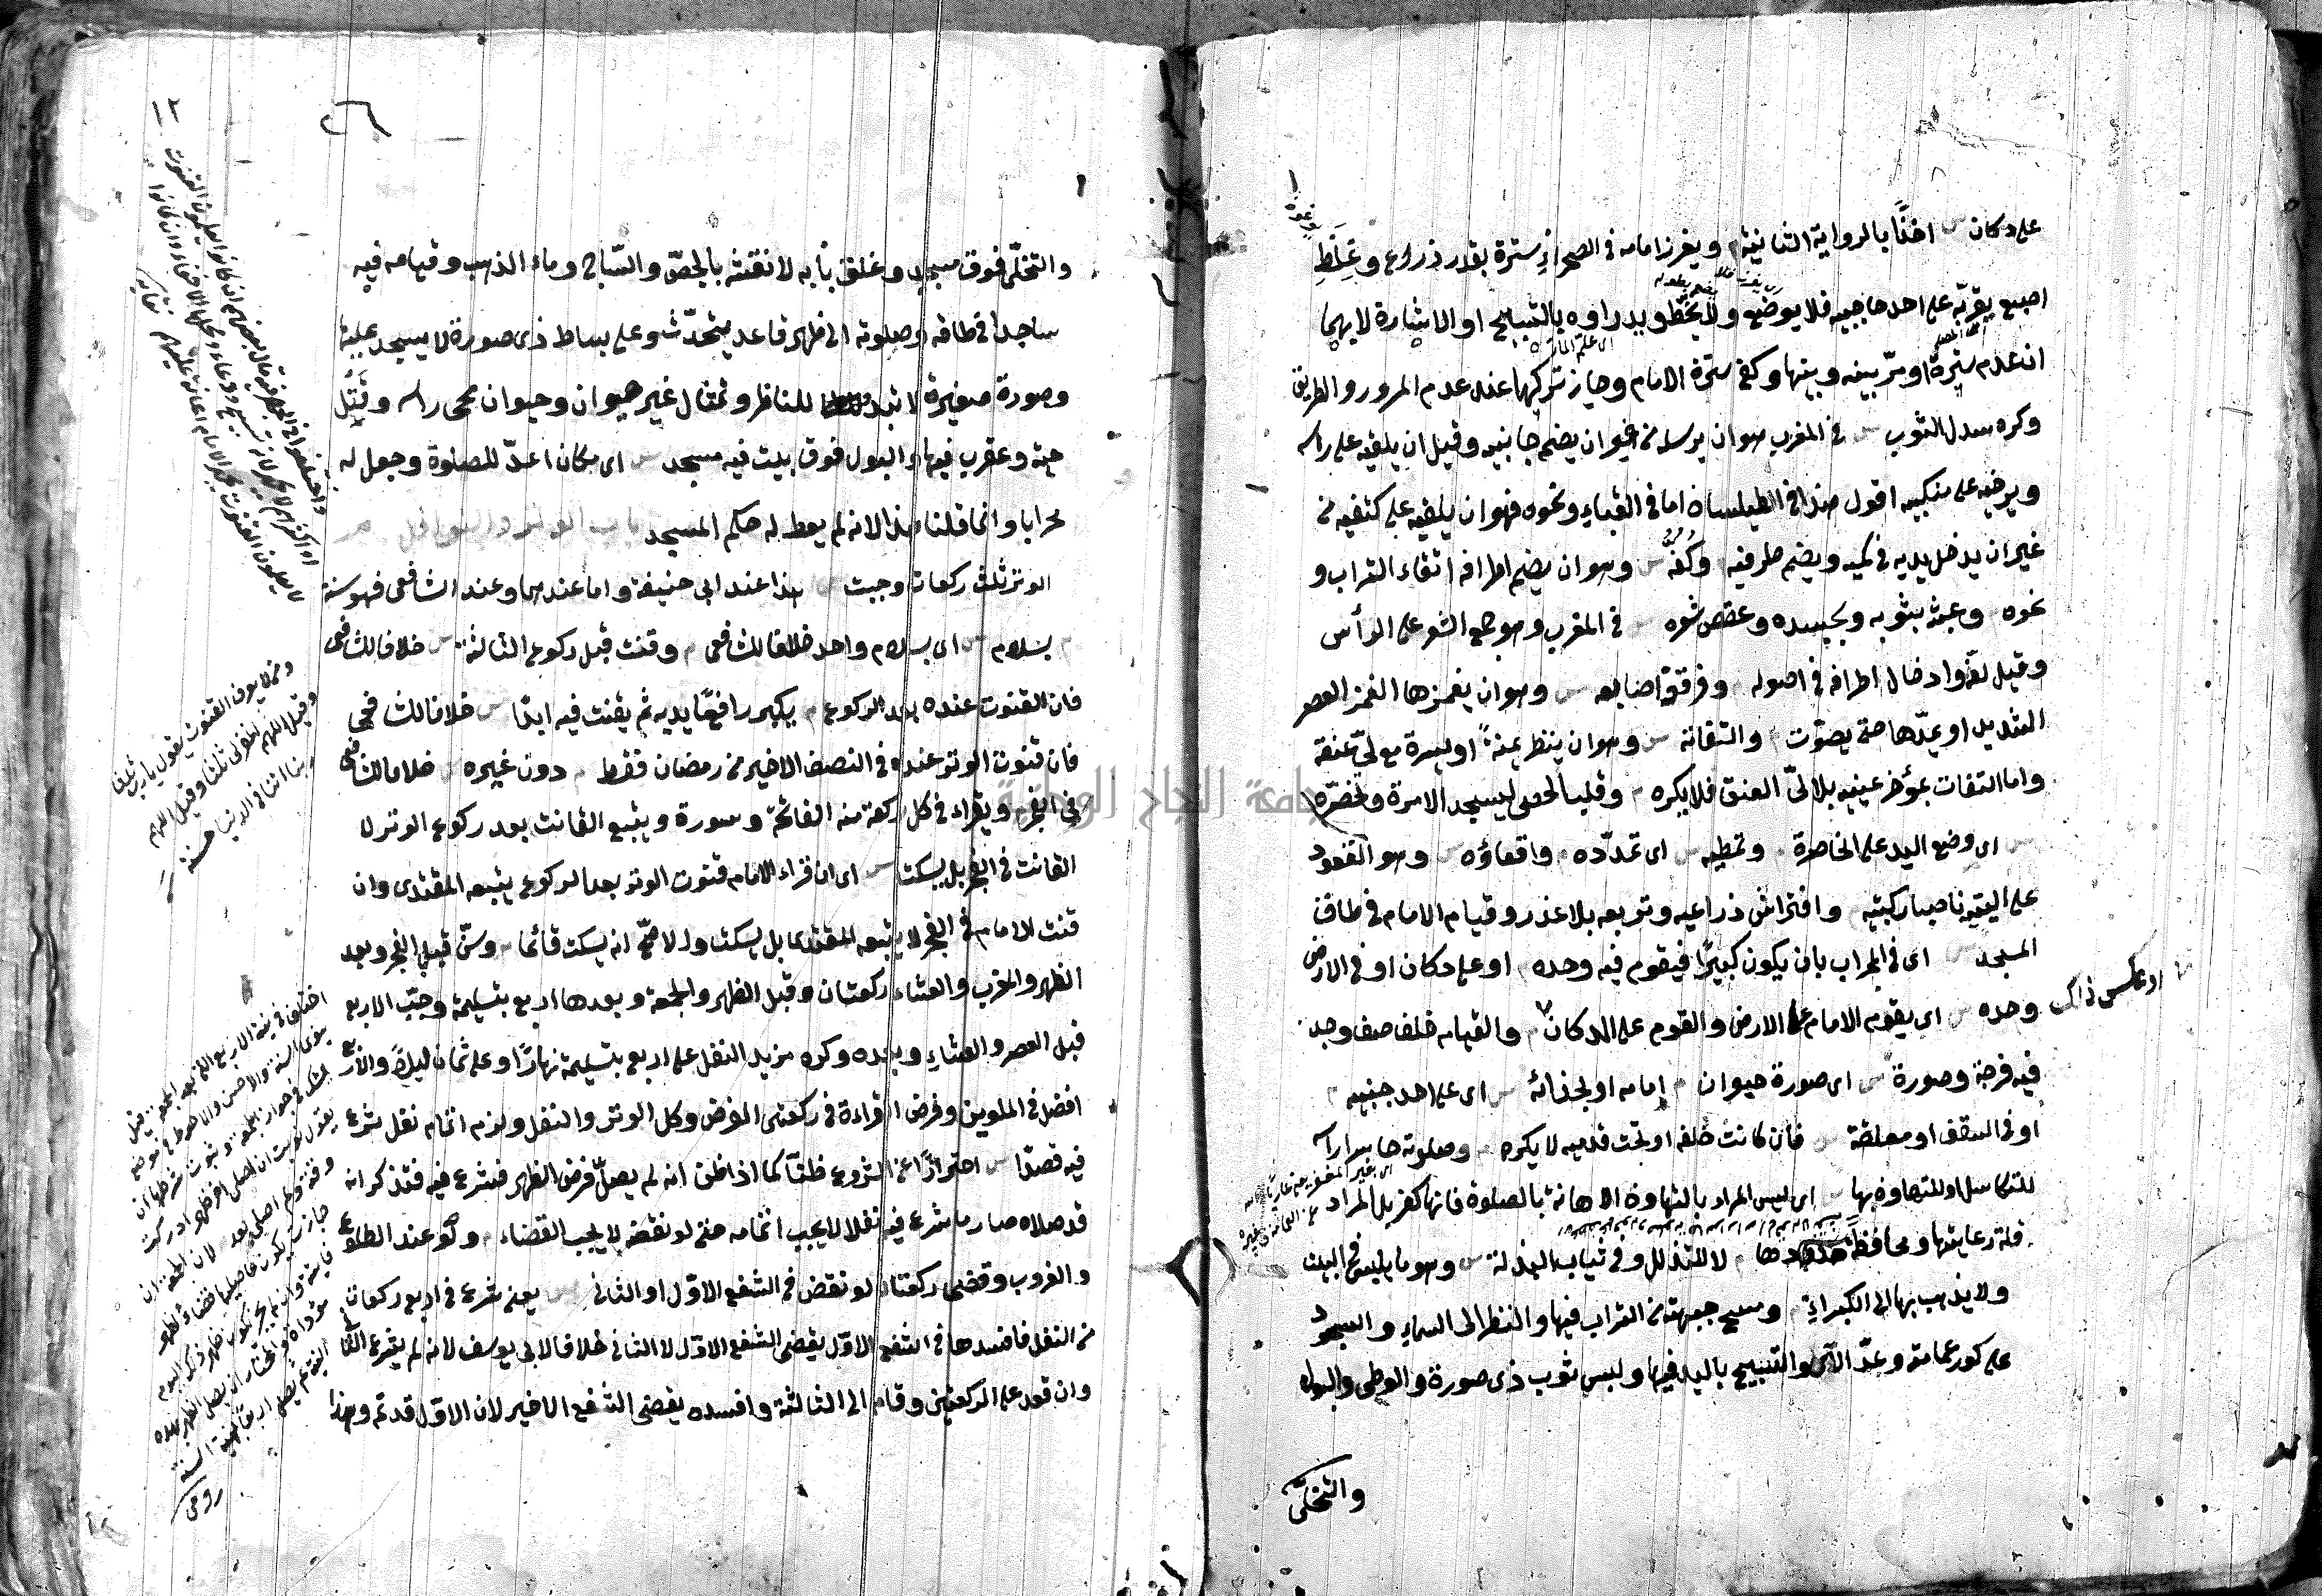 على دكان س اخذًا بالرواية الثانية م ويغرز امامه في الصحراء سترة بقدر ذراع وغلظ
اصبع بقربه على احد حاجبيه فلا يوضع ولا يخط ويدراوه بالتسبيح او الاشارة لا بهما
ان عدم سترة او مر بينه وبينها وكفى سترة الامام وجاز تركها عند عدم المرور والطريق
وكره سدل الثوب س في المغرب هو ان يرسله من غير ان يضم جانبيه وقيل ان يلقيه على راسه
ويرخيه على منكبيه اقول هذا في الطيلسان اما في القباء ونحوه فهو ان يلقيه على كتفيه من
غير ان يدخل يديه في كميه ويضم طرفيه م وكفه س وهو ان يضم اطرافه اتقاء التراب و
نحوه م وعبثه بثوبه وبجسده وعقص شعره س في المغرب وهو جمع الشعر على الرأس
وقيل لفه وادخال اطرافه في اصوله م وفرقعة اصابعه س وهو ان يغمزها الغمز العصر
الشديد او يمدها حتى يصوت م والتفاته س وهو ان ينظر يمنة او يسرة مع لي عنقه
واما التفات بمؤخر عينيه بلا لي العنق فلا يكره م وقلب الحصى ليسجد الا مرة وتخصره
س اى وضع اليد على الخاصرة م وتمطيه س اى تمدده م واقعاؤه س وهو القعود
على اليتيه ناصبا ركبتيه م وافتراش ذراعيه وتربعه بلا عذر وقيام الامام في طاق
المسجد س اى في المحراب بان يكون كبيرًا فيقوم فيه وحده م او على دكان او في الارض
وحده س اى يقوم الامام على الارض والقوم على الدكان م والقيام خلف صف وجد
او عكس ذلك
فيه فرجة وصورة س اى صورة حيوان م امامه او بحذائه س اى على احد جنبيه م
او في السقف او معلقة س فان كانت خلفه او تحت قدميه لا يكره م وصلوته حاسرا راسه
للتكاسل او للتهاون بها س اى ليس المراد بالتهاون الاهانة بالصلوة فانها كفر بل المراد
قلة رعايتها ومحافظة حدودها م لا للتذلل وفي ثياب البذلة س وهو ما يلبس في البيت
ولا يذهب بها الى الكبراء م ومسح جبهته من التراب فيها والنظر الى السماء والسجود
على كور عمامته وعد الآي والتسبيح باليد فيها ولبس ثوب ذى صورة والوطى والبول
والتخلى
١٢
٢٦
والتخلى فوق مسجد وغلق بابه لا نقشه بالجص والساج وماء الذهب وقيامه فيه
ساجدا في طاقه وصلوته الى ظهر قاعد يتحدث وعلى بساط ذى صورة لا يسجد عليه
وصورة صغيرة لا تبدو للناظر وتمثال غير حيوان وحيوان محى راسه وقتل
حية وعقرب فيها والبول فوق بيت فيه مسجد س اى مكان اعد للصلوة وجعل له
محرابا وانما قلنا هذا لانه لم يعط له حكم المسجد باب الوتر والنوافل
الوتر ثلث ركعات وجبت س هذا عند ابى حنيفة واما عندهما وعند الشافعى فهو سنة
م بسلام س اى بسلام واحد خلافا للشافعى م وقنت قبل ركوع الثالثة س خلافا للشافعى
فان القنوت عنده بعد الركوع م يكبر رافعًا يديه ثم يقنت فيه ابدًا س خلافا للشافعى
فان قنوت الوتر عنده في النصف الاخير من رمضان فقط م دون غيره س خلافا للشافعى
في الفجر م ويقراء في كل ركعة منه الفاتحة وسورة ويتبع القانت بعد ركوع الوتر لا
القانت في الفجر بل يسكت س اى ان قراء الامام قنوت الوتر بعد الركوع يتبعه المقتدى وان
قنت الامام في الفجر لا يتبعه المقتدى بل يسكت والاصح انه يسكت قائما م وسن قبل الفجر وبعد
الظهر والمغرب والعشاء ركعتان وقبل الظهر والجمعة وبعدها اربع بتسليمة وحبب الاربع
قبل العصر والعشاء وبعده وكره مزيد النفل على اربع بتسليمة نهارًا وعلى ثمان ليلا والاربع
افضل في الملوين وفرض القراءة في ركعتى الفرض وكل الوتر والنفل ولزم اتمام نفل شرع
فيه قصدًا س احترازًا عن الشروع ظنا كما اذا ظن انه لم يصل فرض الظهر فشرع فيه فتذكر انه
قد صلاه صار ما شرع فيه نفلا لا يجب اتمامه حتى لو نقضه لا يجب القضاء م ولو عند الطلوع
والغروب وقضى ركعتان لو نقض في الشفع الاول او الثانى س يعنى شرع في اربع ركعات
من النفل فافسدها في الشفع الاول يقضى الشفع الاول لا الثانى خلافا لابى يوسف لانه لم يشرع الثانى
وان قعد على الركعتين وقام الى الثالثة وافسده يقضى الشفع الاخير لان الاول قد تم وهذا
ومن لا يعرف القنوت يقول يا رب ثلثا
وقيل اللهم اغفر لى ثلثا وقيل اللهم
ربنا اتنا في الدنيا حسنة
جامعة النجاح الوطنية